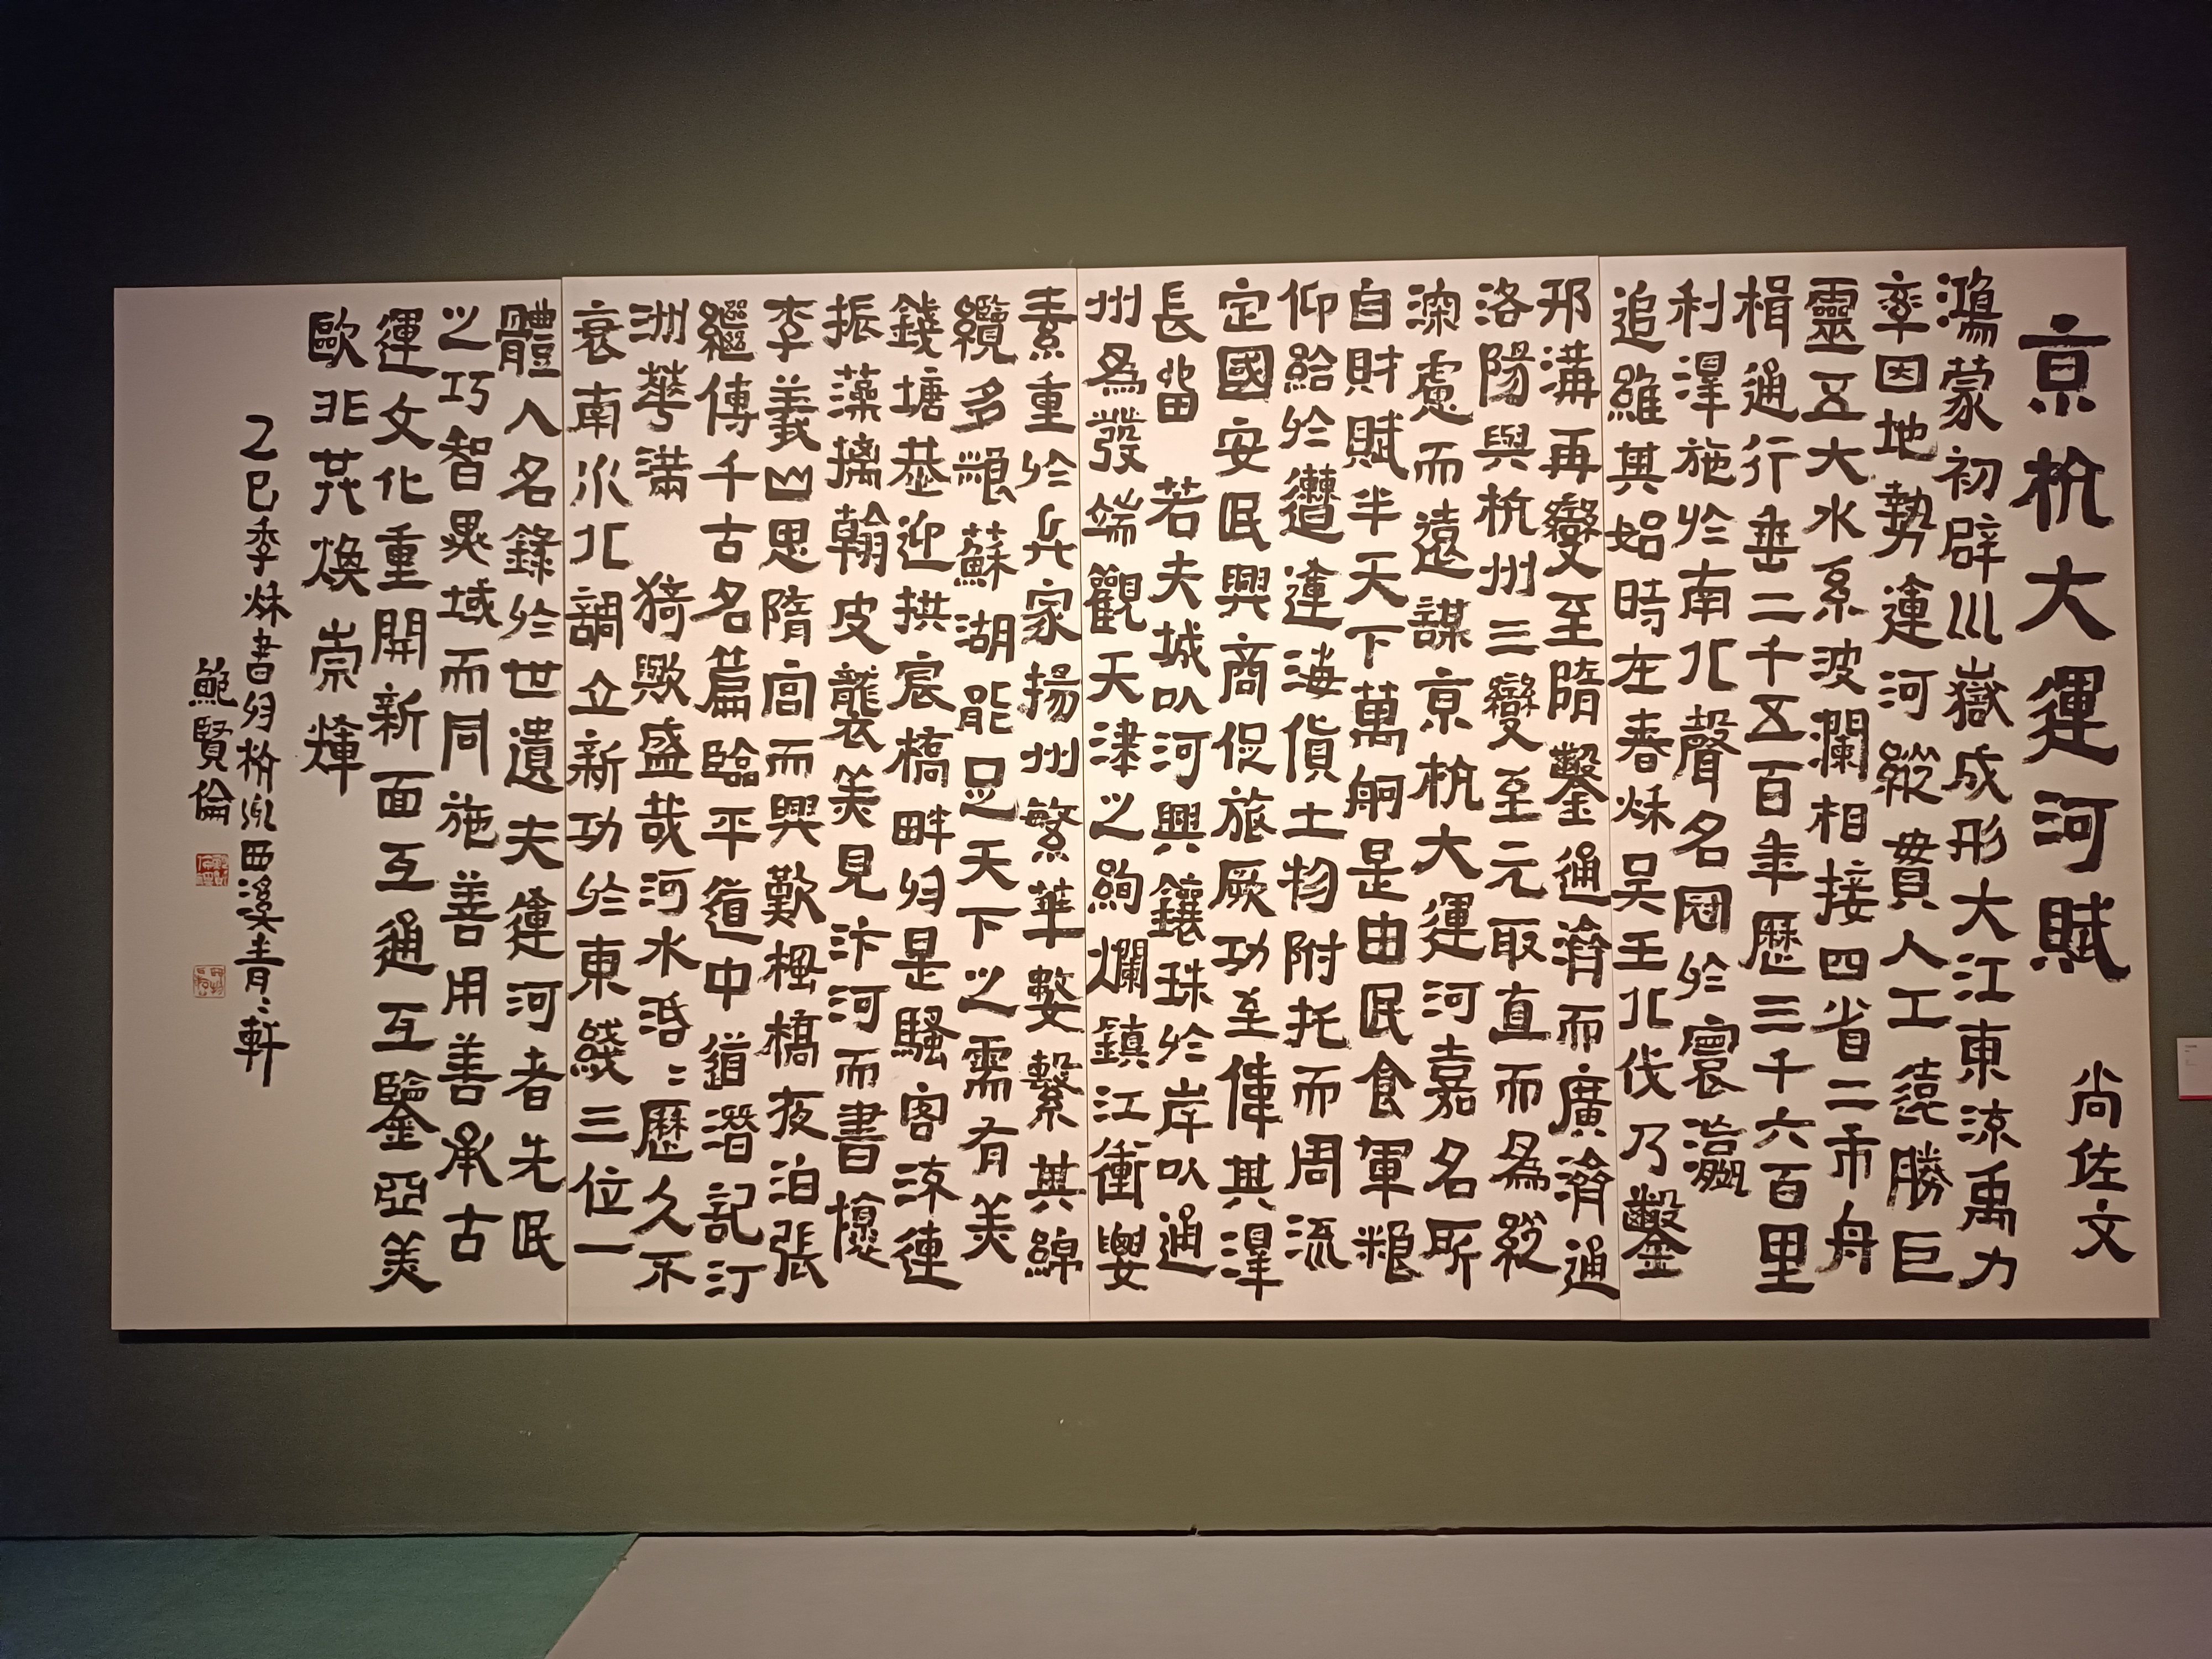 京杭大運河賦 尚佐文
鴻蒙初辟川嶽成形大江東流禹力
率因地勢運河縱貫人工竟勝巨
靈五大水系波瀾相接四省二市舟
楫通行垂二千五百年歷三千六百里
利澤施於南北聲名冠於寰瀛
追維其始時在春秋吳王北伐乃鑿
邗溝再變至隋鑿通濟而廣濟通
洛陽與杭州三變至元取直而為縱
深慮而遠謀京杭大運河嘉名所
自財賦半天下萬舸是由民食軍糧
仰給於漕運海貨土物附托而周流
定國安民興商促旅厥功至偉其澤
長留 若夫城以河興鑲珠於岸以通
州為發端觀天津之絢爛鎮江衝要
素重於兵家揚州繁華嫛繫其錦
纜多艱蘇湖能足天下之需有美
錢塘恭迎拱宸橋畔歸是騷客流連
振藻摛翰皮襲美見汴河而書懷
李義山思隋宮而興歎楓橋夜泊張
繼傳千古名篇臨平道中道潛記汀
洲華滿 猗歟盛哉河水滔滔歷久不
衰南水北調立新功於東綫三位一
體入名錄於世遺夫運河者先民
之巧智異域而同施善用善承古
運文化重開新面互通互鑒亞美
歐非共煥崇輝
乙巳季秋書歸於杭州西溪青青軒
鮑賢倫